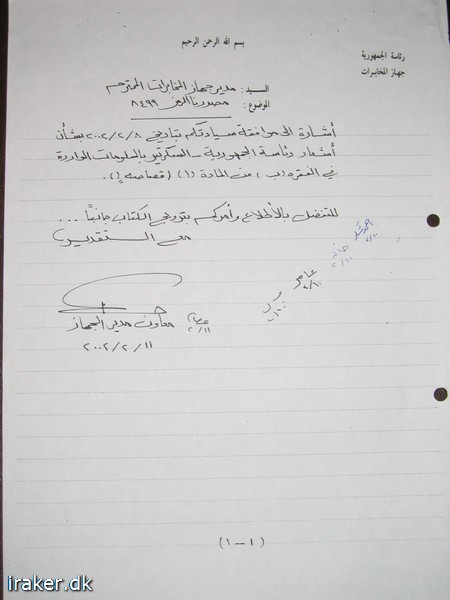 بسم الله الرحمن الرحيم
رئاسة الجمهورية
جهاز المخابرات
السيد : مدير جهاز المخابرات المحترم
الموضوع : مصدرنا المرقم ٨٤٩٩
أشارة الى موافقة سيادتكم بتاريخ ٢٠٠٢/٢/٨ بشأن
أشعار رئاسة الجمهورية - السكرتير بالمعلومات الواردة
في الفقرة (ب) من المادة (١)
للتفضل بالأطلاع وأمركم بترويج الكتاب جانباً ...
مع التقدير
عامر
٢/١٠
٢/١٠
٢/١١
معاون مدير الجهاز
٢٠٠٢/٢/١١
(١-١)
iraker.dk